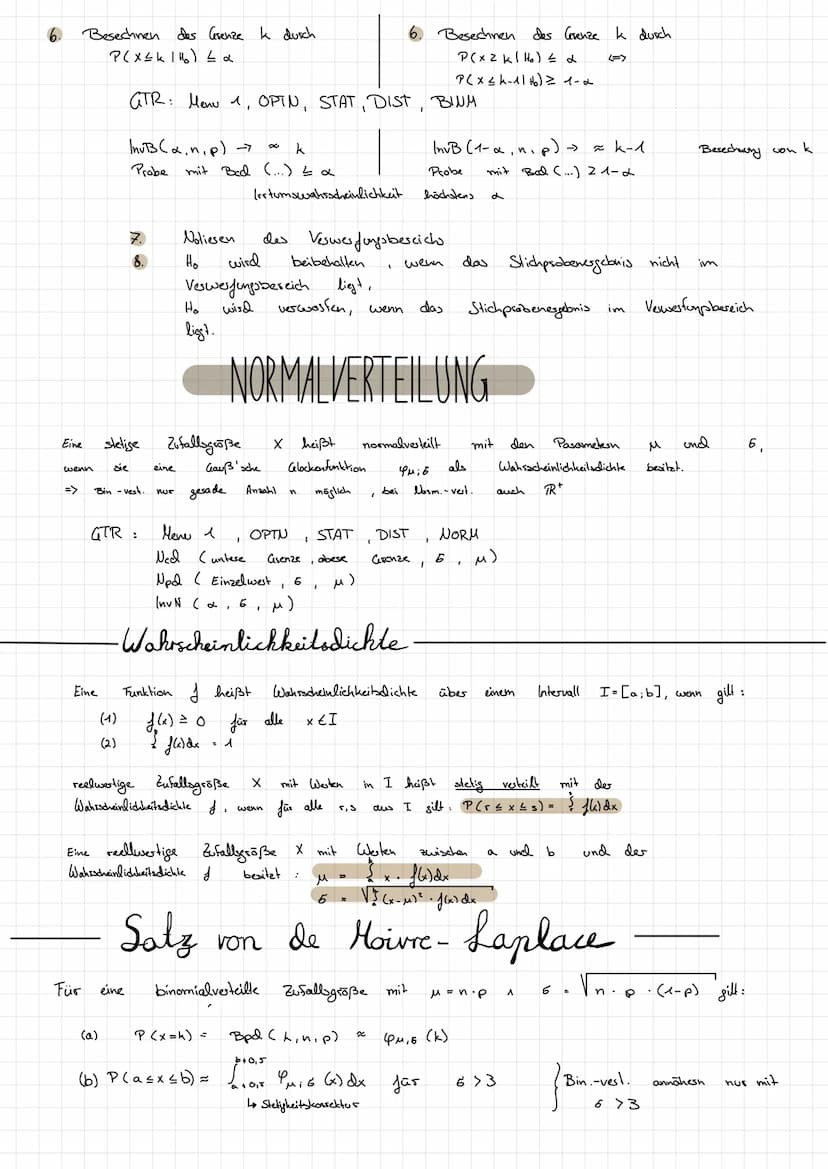 6. Berechnen der Grenze k durch
P(X≤k|H₀) ≤ α
6. Berechnen der Grenze k durch
P(X≥k|H₀) ≤ α ⟺
P(X≤k-1|H₀) ≥ 1-α
GTR: Menu 1, OPTN, STAT, DIST, BINM
InvB(α,n,p) → ≈ k
Probe mit Bcd (...) ≤ α
InvB(1-α,n,p) → ≈ k-1 Berechnung von k
Probe mit Bcd(...) ≥ 1-α
Irrtumswahrscheinlichkeit höchstens α
7. Notieren des Verwerfungsbereichs
8. H₀ wird beibehalten, wenn das Stichprobenergebnis nicht im
Verwerfungsbereich liegt,
H₀ wird verworfen, wenn das Stichprobenergebnis im Verwerfungsbereich
liegt.
NORMALVERTEILUNG
Eine stetige Zufallsgröße X heißt normalverteilt mit den Parametern μ und σ,
wenn sie eine Gauß'sche Glockenfunktion φμ;σ als Wahrscheinlichkeitsdichte besitzt.
=> Bin-vert. nur gerade Anzahl n möglich, bei Norm.-vert. auch ℝ⁺
GTR: Menu 1, OPTN, STAT, DIST, NORM
Ncd (untere Grenze, obere Grenze, σ, μ)
Npd (Einzelwert, σ, μ)
InvN (α, σ, μ)
Wahrscheinlichkeitsdichte
Eine Funktion f heißt Wahrscheinlichkeitsdichte über einem Intervall I=[a;b], wenn gilt:
(1) f(x) ≥ 0 für alle x∈I
(2) ∫ f(x)dx = 1
reellwertige Zufallsgröße X mit Werten in I heißt stetig verteilt mit der
Wahrscheinlichkeitsdichte f, wenn für alle r,s aus I gilt: P(r≤x≤s) = ∫ f(x)dx
Eine reellwertige Zufallsgröße X mit Werten zwischen a und b und der
Wahrscheinlichkeitsdichte f besitzt: μ = ∫ x · f(x)dx
σ = √∫(x-μ)² · f(x)dx
Satz von de Moivre-Laplace
Für eine binomialverteilte Zufallsgröße mit μ = n·p ∧ σ = √n · p · (1-p) gilt:
(a) P(x=k) = Bpd(k,n,p) ≈ φμ,σ(k)
(b) P(a≤x≤b) ≈ ∫ₐ₊₀,₅ᵇ⁺⁰'⁵ φμ;σ(x)dx für σ>3
↳ Stetigkeitskorrektur
} Bin.-vert. annähern nur mit
σ>3